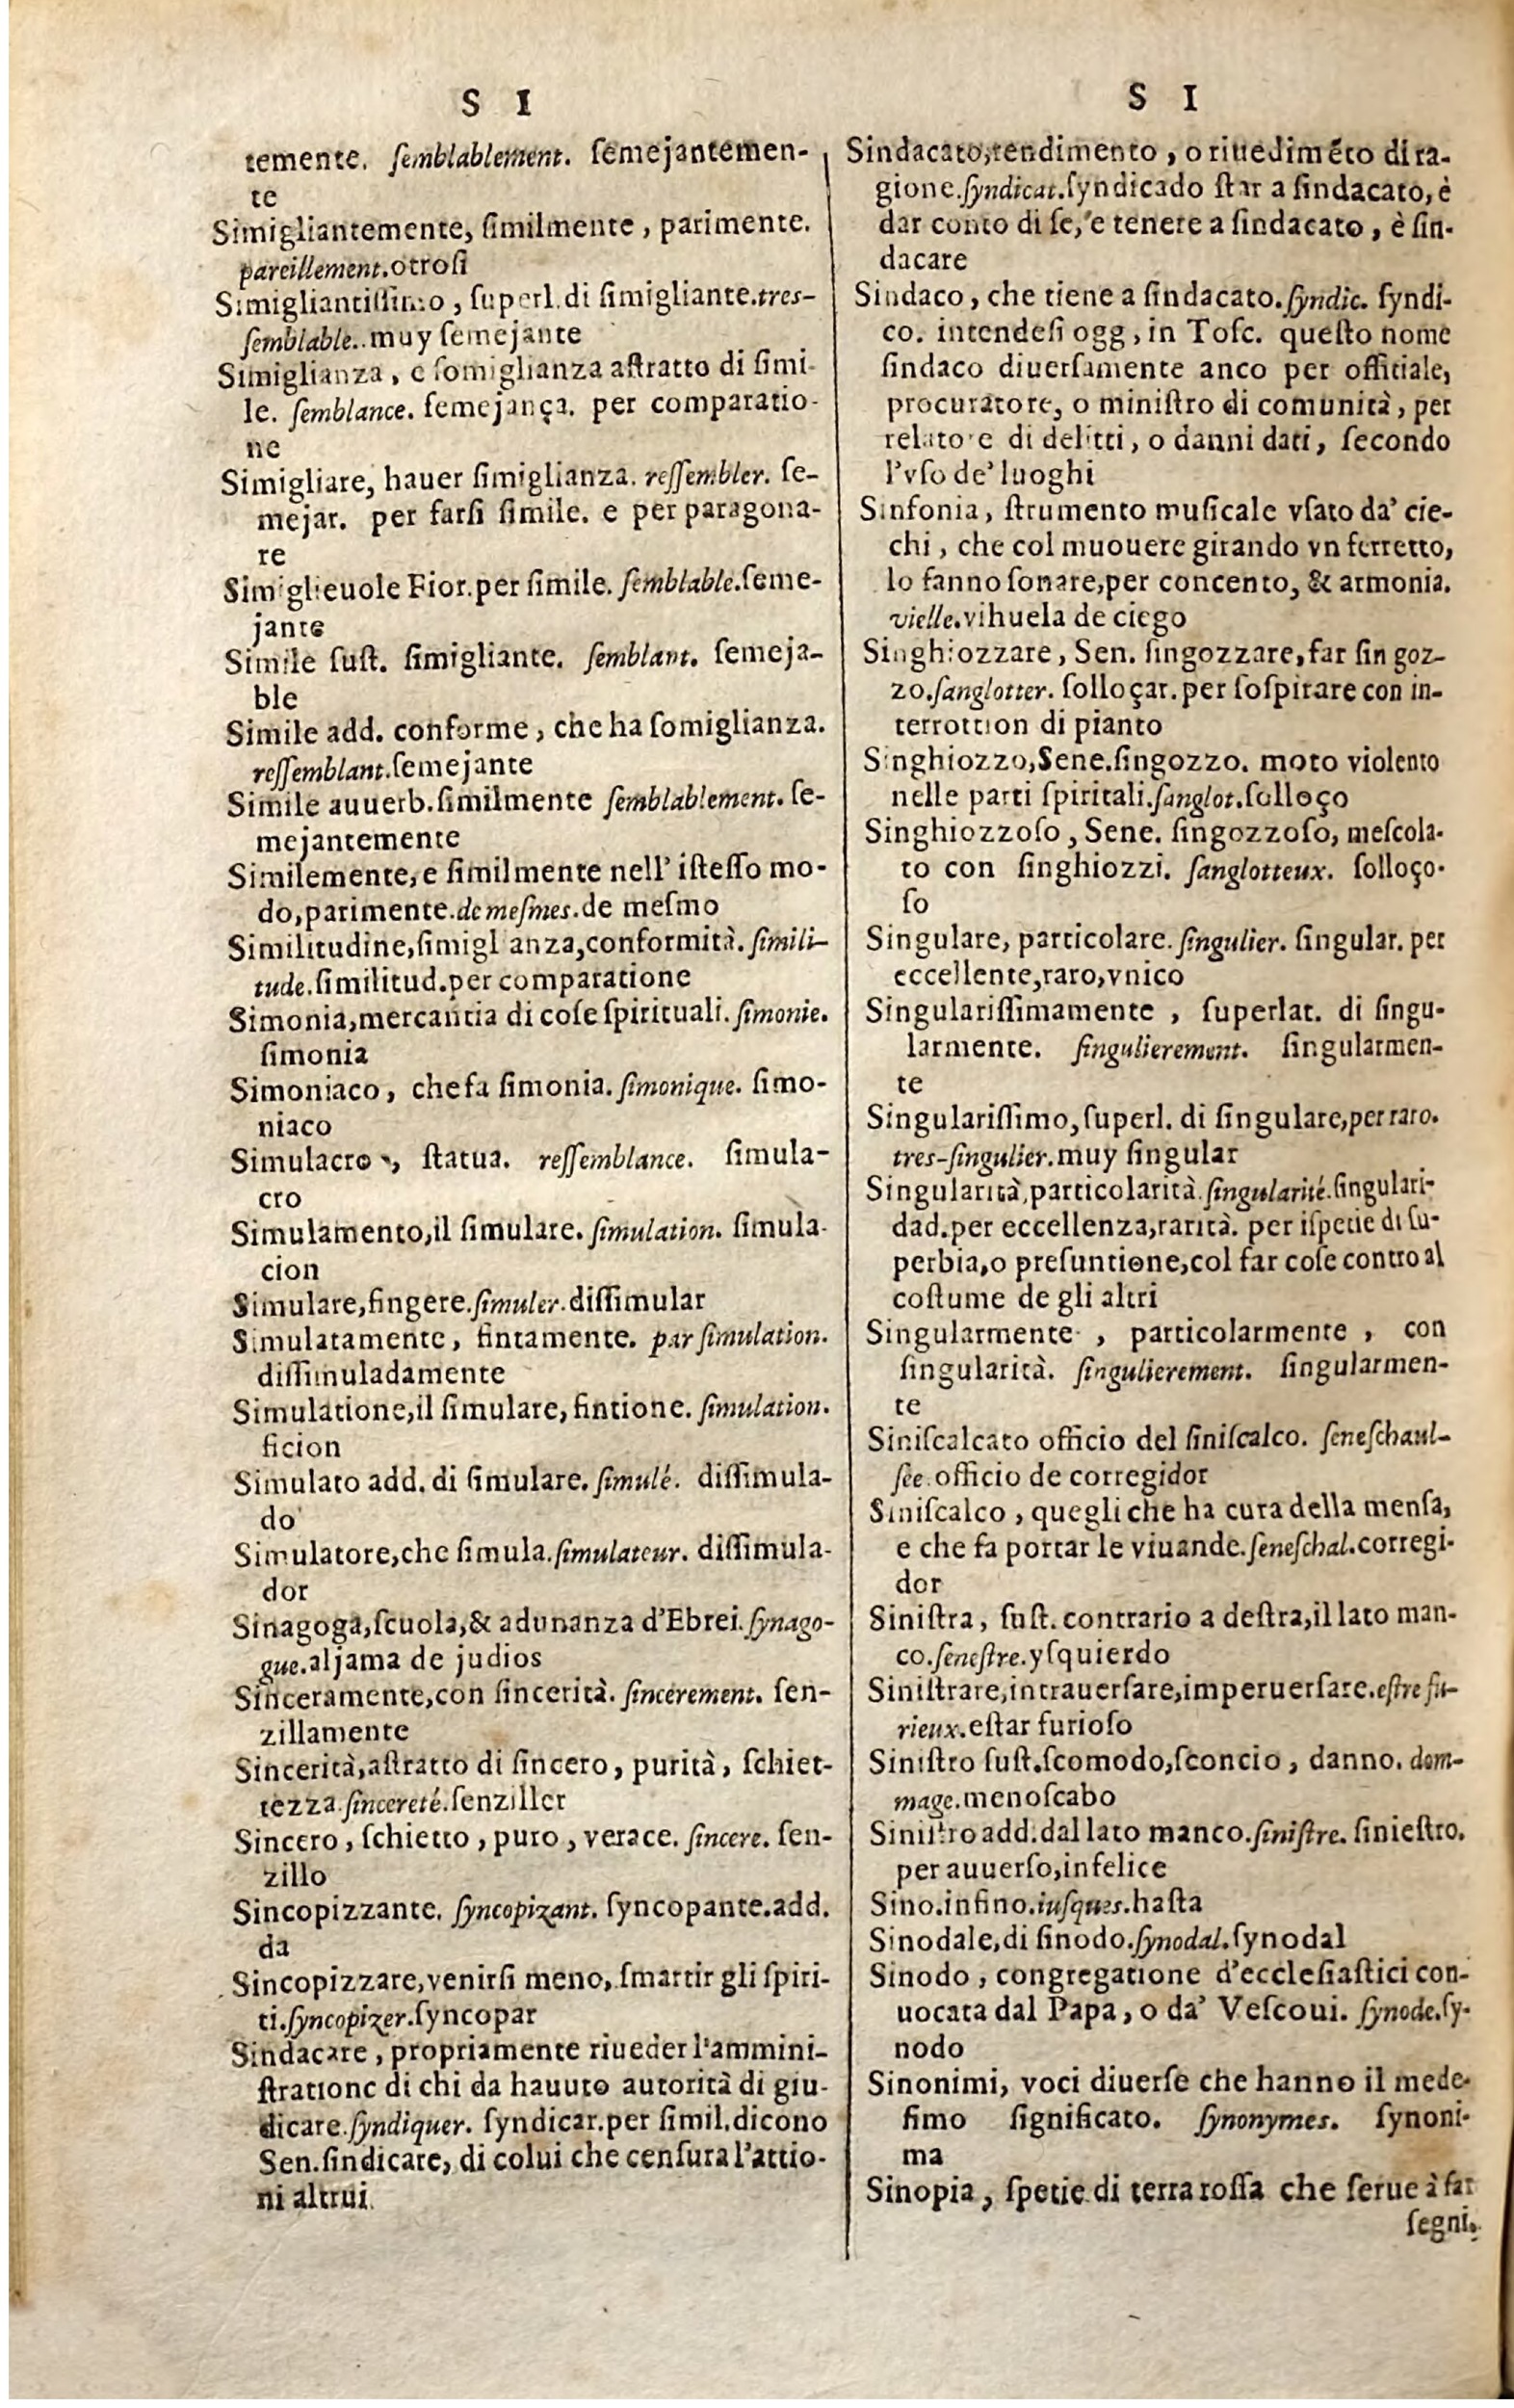 S I
temente. ſemblablement. ſemejantemen-
te
Simigliantemente, ſimilmente, parimente.
pareillement. otroſi
Simigliantiſſimo, ſuperl. di ſimigliante. tres-
ſemblable. muy ſemejante
Simiglianza, e ſomiglianza aſtratto di ſimi-
le. ſemblance. ſemejança. per comparatio-
ne
Simigliare, hauer ſimiglianza. reſſembler. ſe-
mejar. per farſi ſimile. e per paragona-
re
Simiglieuole Fior. per ſimile. ſemblable. ſeme-
jante
Simile ſuſt. ſimigliante. ſemblant. ſemeja-
ble
Simile add. conforme, che ha ſomiglianza.
reſſemblant. ſemejante
Simile auuerb. ſimilmente ſemblablement. ſe-
mejantemente
Similemente, e ſimilmente nell' iſteſſo mo-
do, parimente. de meſmes. de meſmo
Similitudine, ſimiglianza, conformità. ſimili-
tude. ſimilitud. per comparatione
Simonia, mercantia di coſe ſpirituali. ſimonie.
ſimonia
Simoniaco, che fa ſimonia. ſimonique. ſimo-
niaco
Simulacro, ſtatua. reſſemblance. ſimula-
cro
Simulamento, il ſimulare. ſimulation. ſimula-
cion
Simulare, fingere. ſimuler. diſſimular
Simulatamente, fintamente. par ſimulation.
diſſimuladamente
Simulatione, il ſimulare, fintione. ſimulation.
ficion
Simulato add. di ſimulare. ſimulé. diſſimula-
do
Simulatore, che ſimula. ſimulateur. diſſimula-
dor
Sinagoga, ſcuola, & adunanza d'Ebrei. ſynago-
gue. aljama de judios
Sinceramente, con ſincerità. ſincerement. ſen-
zillamente
Sincerità, aſtratto di ſincero, purità, ſchiet-
tezza. ſincereté. ſenziller
Sincero, ſchietto, puro, verace. ſincere. ſen-
zillo
Sincopizzante. ſyncopizant. ſyncopante. add.
da
Sincopizzare, venirſi meno, ſmarrir gli ſpiri-
ti. ſyncopizer. ſyncopar
Sindacare, propriamente riueder l'ammini-
ſtratione di chi da hauuto autorità di giu-
dicare. ſyndiquer. ſyndicar. per ſimil. dicono
Sen. ſindicare, di colui che cenſura l'attio-
ni altrui.
S I
Sindacato, rendimento, o riuedimẽto di ra-
gione. ſyndicat. ſyndicado ſtar a ſindacato, è
dar conto di ſe, e tenere a ſindacato, è ſin-
dacare
Sindaco, che tiene a ſindacato. ſyndic. ſyndi-
co. intendeſi ogg, in Toſc. queſto nome
ſindaco diuerſamente anco per offitiale,
procuratore, o miniſtro di comunità, per
relatore di delitti, o danni dati, ſecondo
l'vſo de' luoghi
Sinfonia, ſtrumento muſicale vſato da' cie-
chi, che col muouere girando vn ferretto,
lo fanno ſonare, per concento, & armonia.
vielle. vihuela de ciego
Singhiozzare, Sen. ſingozzare, far ſin goz-
zo. ſanglotter. ſolloçar. per ſoſpirare con in-
terrottion di pianto
Singhiozzo, Sene. ſingozzo. moto violento
nelle parti ſpiritali. ſanglot. ſolloço
Singhiozzoſo, Sene. ſingozzoſo, meſcola-
to con ſinghiozzi. ſanglotteux. ſolloço-
ſo
Singulare, particolare. ſingulier. ſingular. per
eccellente, raro, vnico
Singulariſſimamente, ſuperlat. di ſingu-
larmente. ſingulierement. ſingularmen-
te
Singulariſſimo, ſuperl. di ſingulare, per raro.
tres-ſingulier. muy ſingular
Singularità, particolarità. ſingularité. ſingulari-
dad. per eccellenza, rarità. per iſpetie di ſu-
perbia, o preſuntione, col far coſe contro al
coſtume de gli altri
Singularmente, particolarmente, con
ſingularità. ſingulierement. ſingularmen-
te
Siniſcalcato officio del ſiniſcalco. ſeneſchaul-
ſée. officio de corregidor
Siniſcalco, quegli che ha cura della menſa,
e che fa portar le viuande. ſeneſchal. corregi-
dor
Siniſtra, ſuſt. contrario a deſtra, il lato man-
co. ſeneſtre. yſquierdo
Siniſtrare, intrauerſare, imperuerſare. eſtre fu-
rieux. eſtar furioſo
Siniſtro ſuſt. ſcomodo, ſconcio, danno. dom-
mage. menoſcabo
Siniſtro add. dal lato manco. ſiniſtre. ſinieſtro.
per auuerſo, infelice
Sino. infino. iuſques. haſta
Sinodale, di ſinodo. ſynodal. ſynodal
Sinodo, congregatione d'eccleſiaſtici con-
uocata dal Papa, o da' Veſcoui. ſynode. ſy-
nodo
Sinonimi, voci diuerſe che hanno il mede-
ſimo ſignificato. ſynonymes. ſynoni-
ma
Sinopia, ſpetie di terra roſſa che ſerue à far
ſegni.